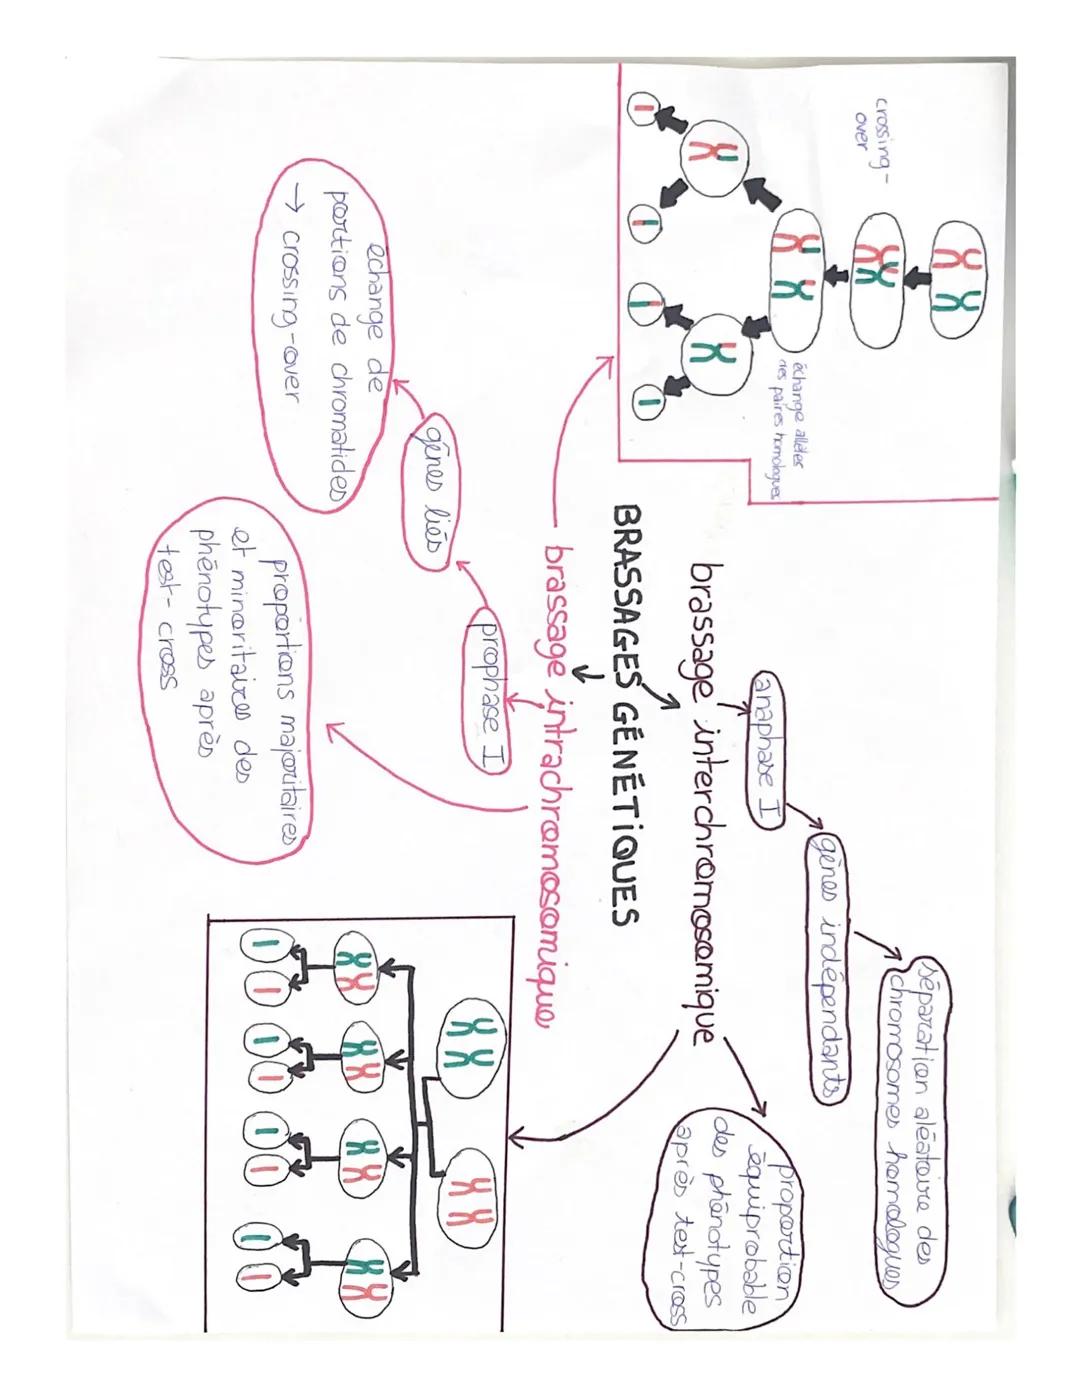 crossing-
over
échange allèles
des paires homologues
séparation aléatoire des
chromosomes homologues
gènes indépendants
anaphase I
brassage interchromosomique
proportion
équiprobable
des phénotypes
après test-cross
BRASSAGES GÉNÉTIQUES
brassage intrachromosomique
prophase I
gènes liés
échange de
portions de chromatides
→ crossing-over
proportions majoritaires
et minoritaires des
phénotypes après
test-cross